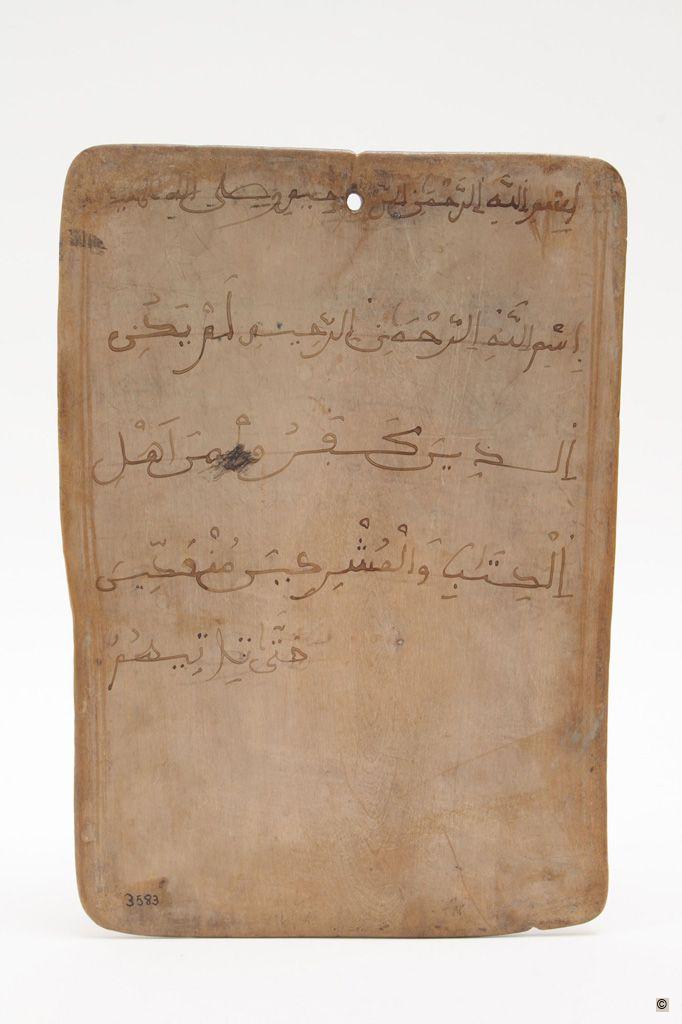 بسم الله الرحمن الرحيم وصلى الله
بِسْمِ اللَّهِ الرَّحْمَنِ الرَّحِيمِ لَمْ يَكُنِ
الذِينَ كَفَرُواْ مِنَ اَهْلِ
الْكِتَبِ وَالْمُشْرِكِينَ مُنْفَكِّينَ
حَتَّى تَاتِيَهُمُ
3583
©